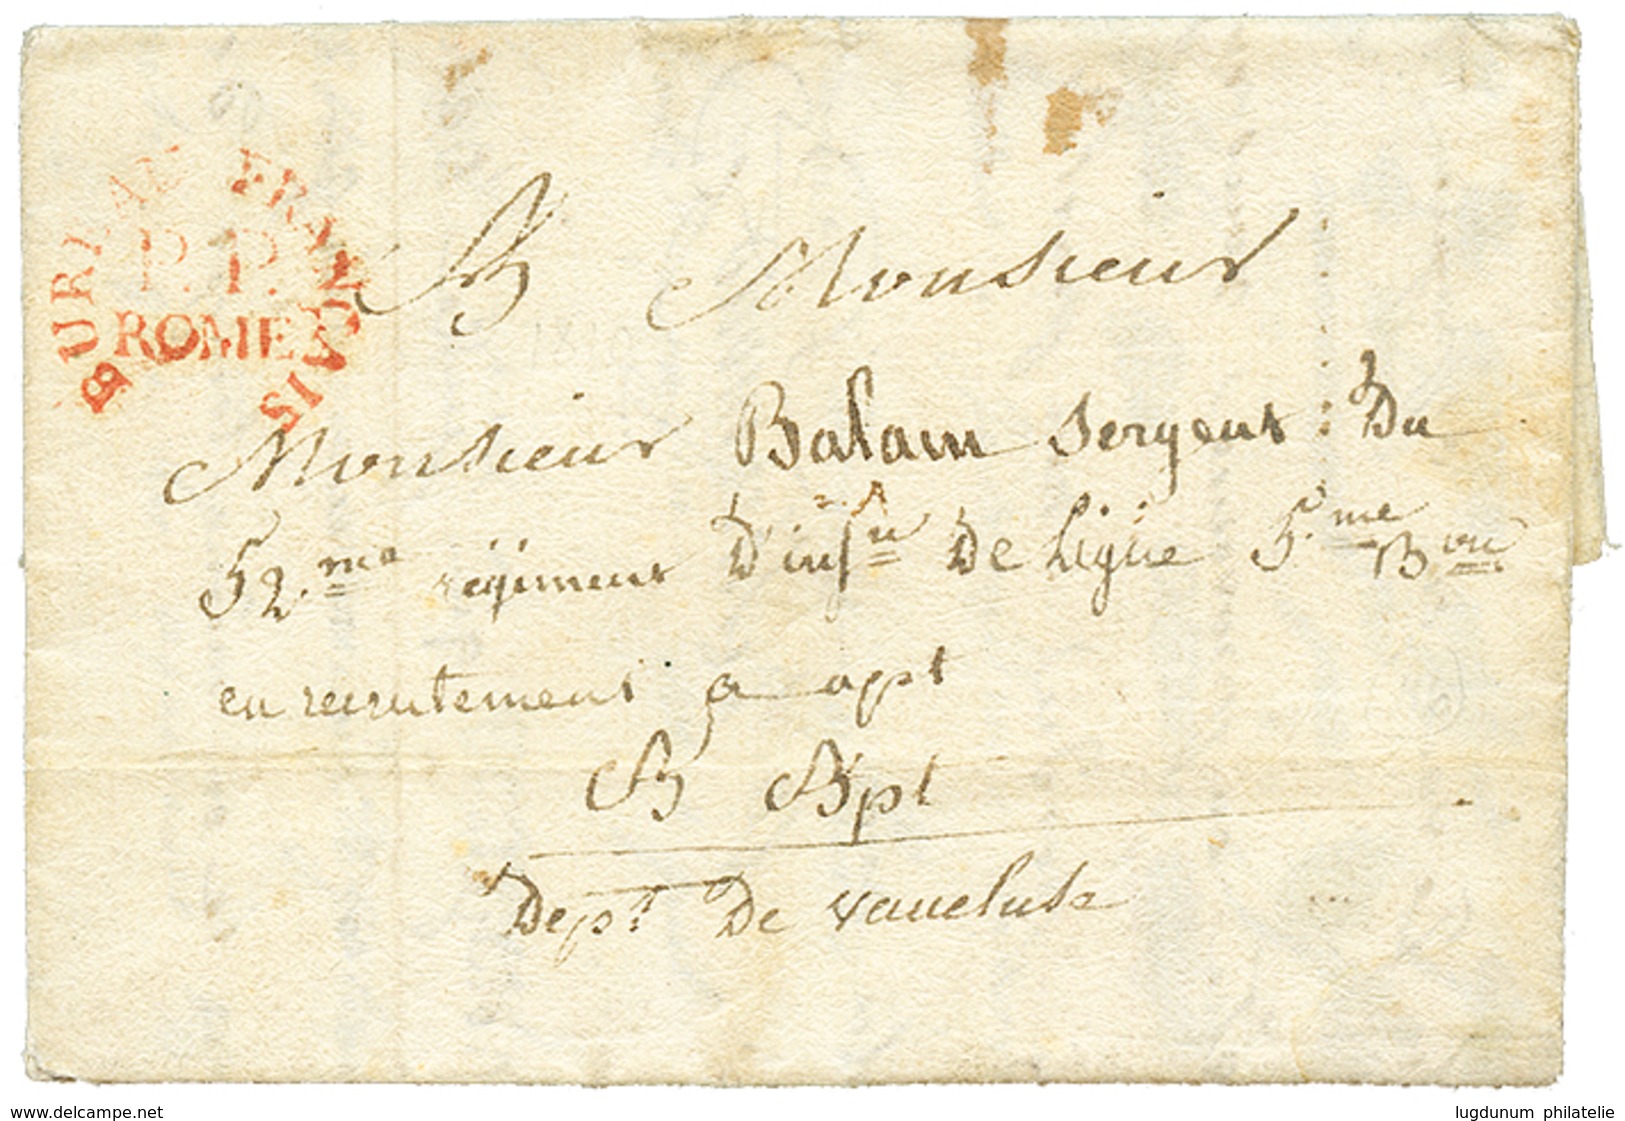 BUREAU FRANÇAIS
P. P.
ROME
A Monsieur
Monsieur Balain Sergent Du
52.me régiment D'inf.ie De Ligne 5.me B.on
en recrutement a apt
A Apt
Dep.t De Vaucluse
delcampe.net
lugdunum philatelie